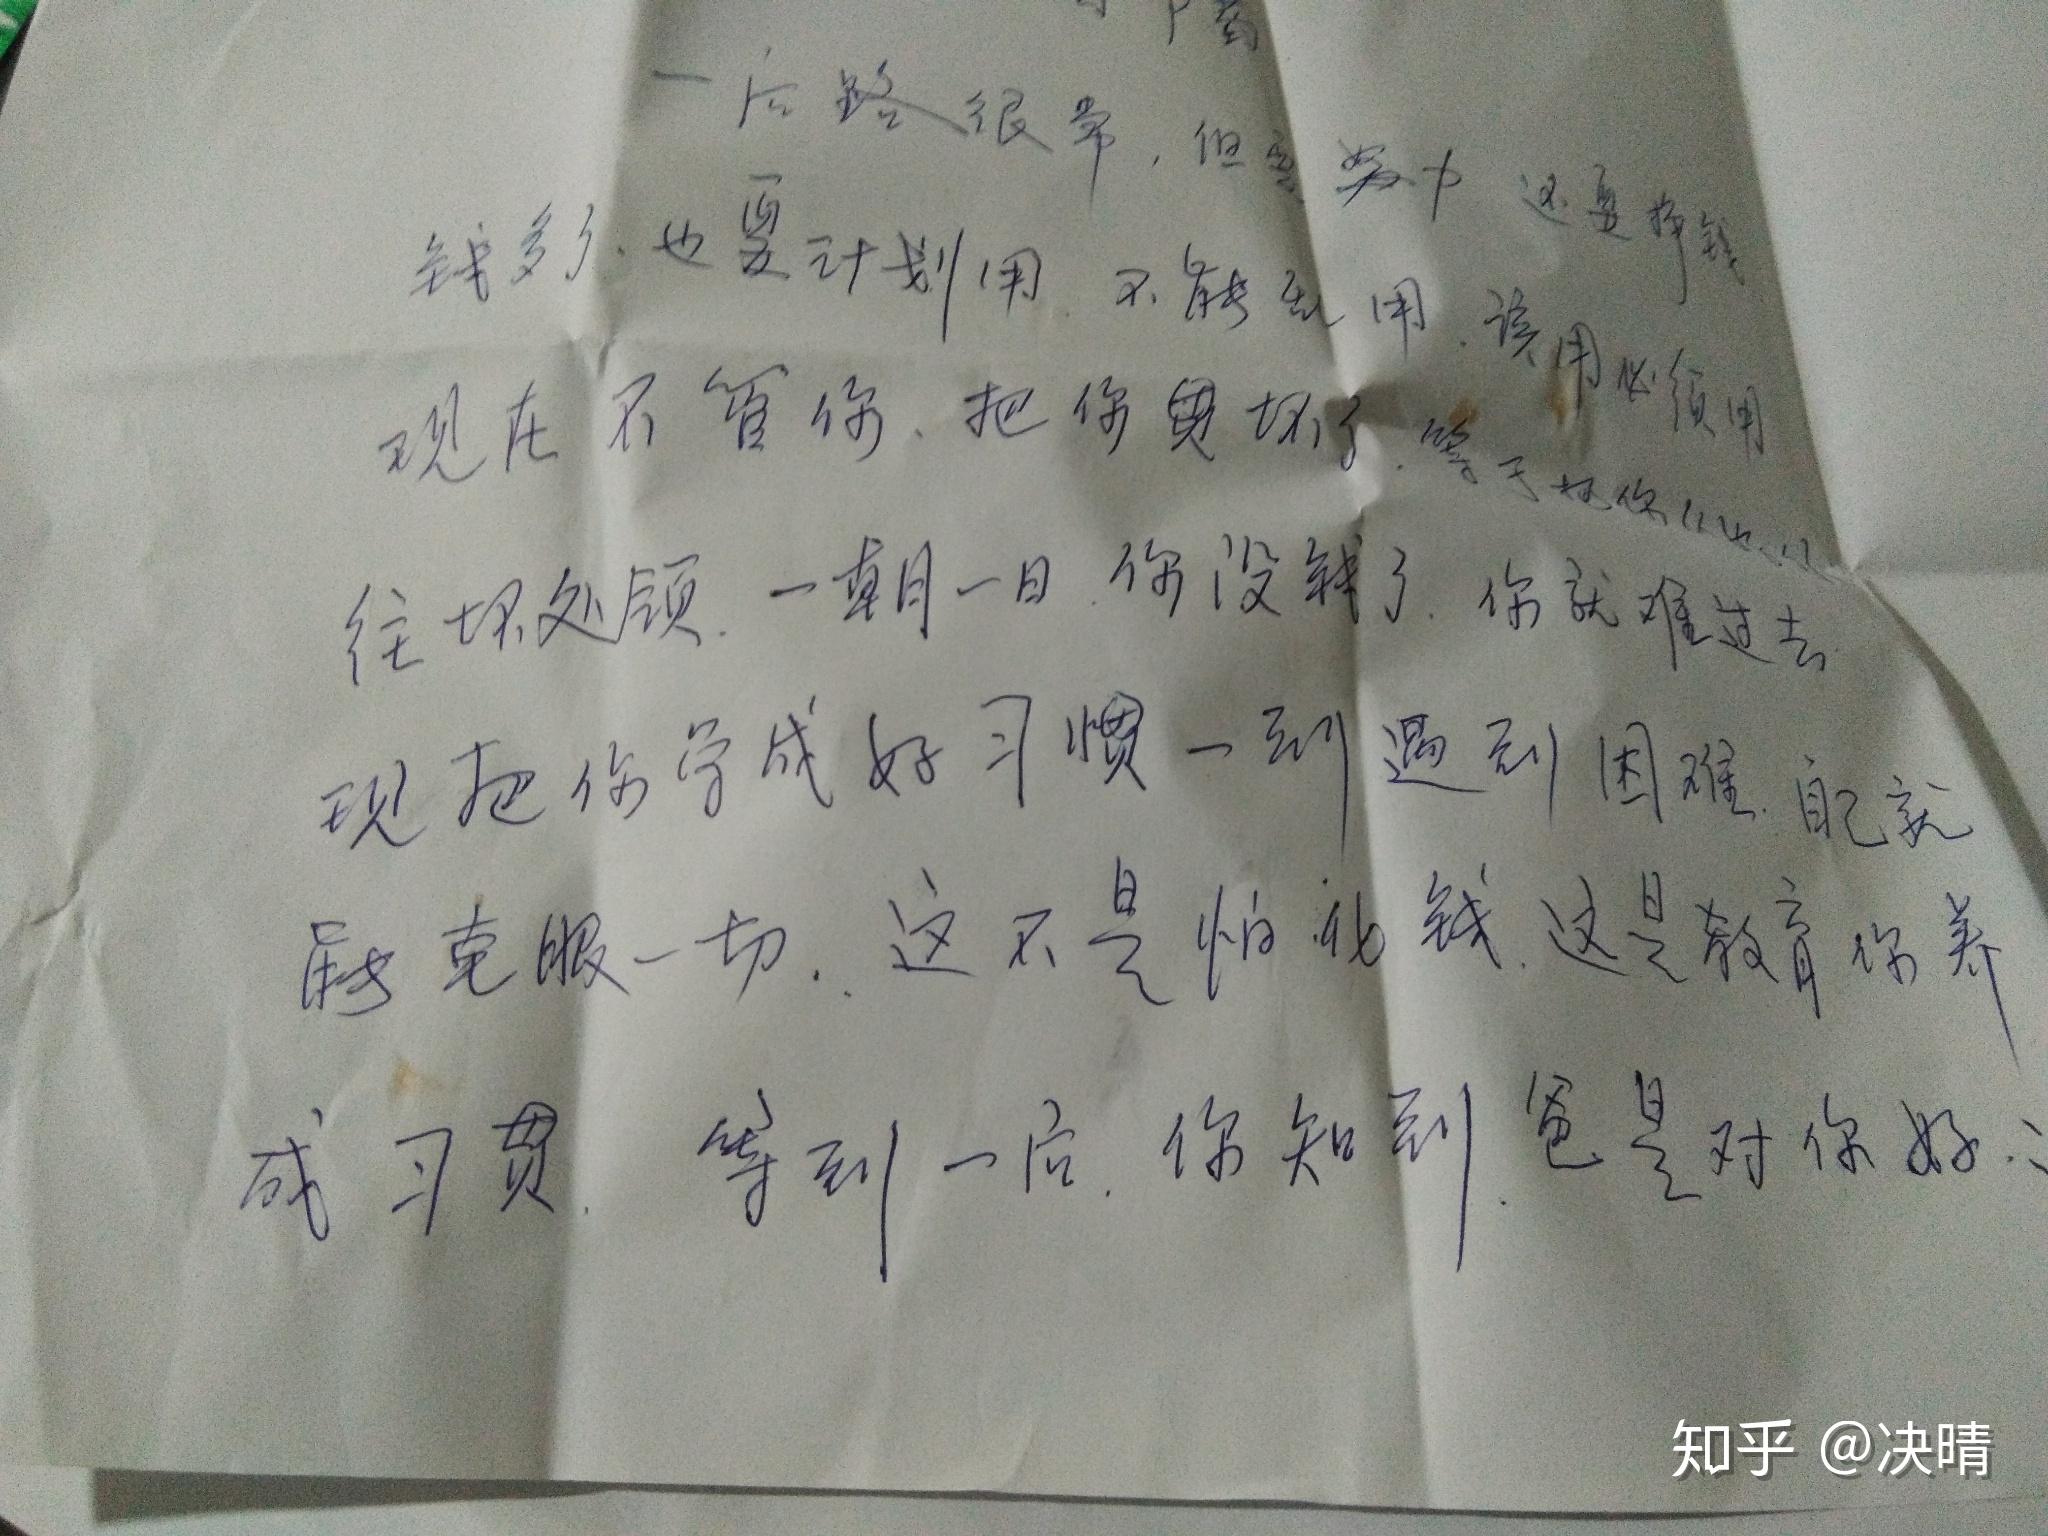 一后路很常，但 努力 还要挣钱
钱多了．也要计划用．不能乱用．该用必须用
现在不管你．把你贯坏了．等于把你
往坏处领．一朝一日．你没钱了．你就难过去
现把你学成好习惯一到遇到困难．自己就
能克服一切．这不是怕化钱．这是教育你养
成习贯．等到一后．你知到．爸是对你好．
知乎 @决晴